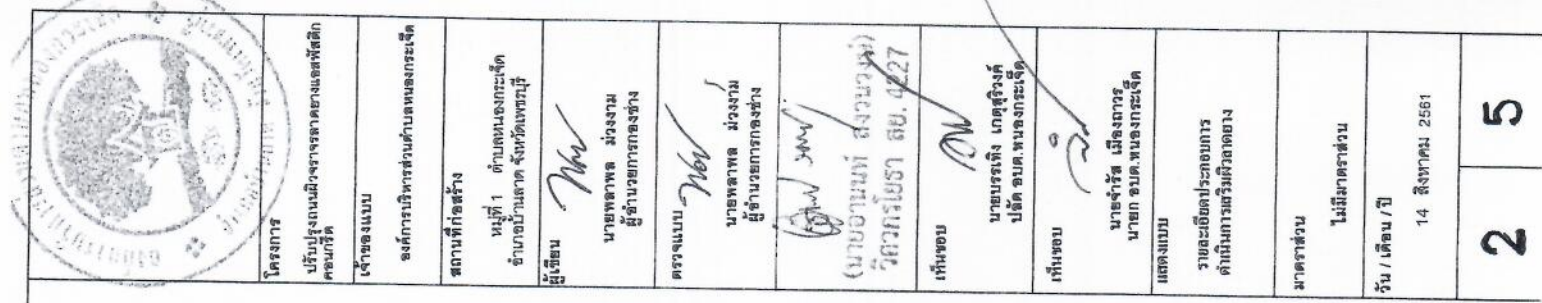 โครงการ
ปรับปรุงถนนผิวจราจรลาดยางแอสฟัสติก
คอนกรีต
เจ้าของแบบ
องค์การบริหารส่วนตำบลหนองกระเจ็ด
สถานที่ก่อสร้าง
หมู่ที่ 1 ตำบลหนองกระเจ็ด
อำเภอบ้านลาด จังหวัดเพชรบุรี
ผู้เขียน
นายพลาพล ม่วงงาม
ผู้อำนวยการกองช่าง
ตรวจแบบ
นายพลาพล ม่วงงาม
ผู้อำนวยการกองช่าง
วิศวกรโยธา สย.4227
เห็นชอบ
นายบรรเทิง เกตุสุริวงค์
ปลัด อบต.หนองกระเจ็ด
เห็นชอบ
นายจำรัส เมืองถาวร
นายก อบต.หนองกระเจ็ด
แสดงแบบ
รายละเอียดประกอบการ
ดำเนินการเสริมผิวลาดยาง
มาตราส่วน
ไม่มีมาตราส่วน
วัน / เดือน / ปี
14 สิงหาคม 2561
2 5